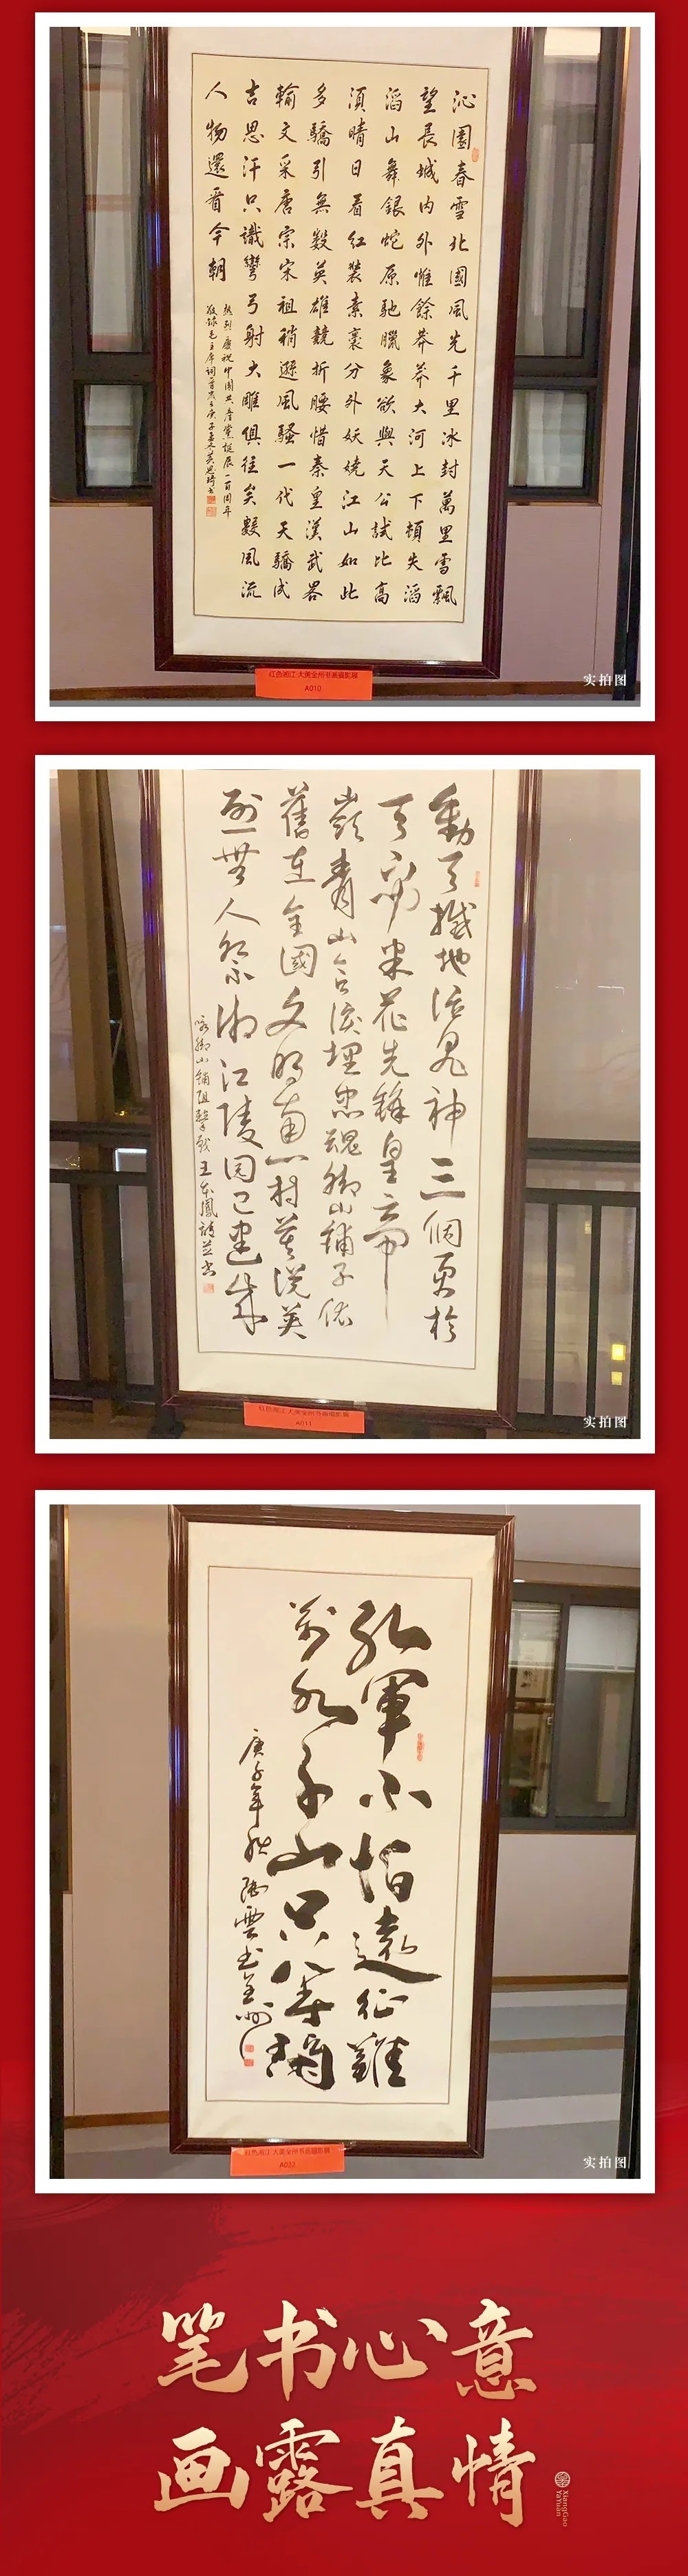 沁園春雪北國風光千里冰封萬里雪飄
望長城內外惟餘莽莽大河上下頓失滔
滔山舞銀蛇原馳臘象欲與天公試比高
須晴日看紅裝素裹分外妖嬈江山如此
多驕引無數英雄競折腰惜秦皇漢武畧
輸文采唐宗宋祖稍遜風騷一代天驕成
吉思汗只識彎弓射大雕俱往矣數風流
人物還看今朝
熱烈慶祝中國共產黨誕辰一百周年
敬錄毛主席詞
红色湘江 大美全州书画摄影展
A010
实拍图
動天撼地泣鬼神三個
米花先鋒皇帝
嶺青山含淚埋忠魂脚山鋪子依
舊在全國文明南一村莫説英
烈無人祭湘江陵园已建成
咏脚山鋪阻擊戰王本鳳詩並書
红色湘江 大美全州书画摄影展
A011
实拍图
紅軍不怕遠征難
萬水千山只等閑
庚子年秋
红色湘江 大美全州书画摄影展
实拍图
笔书心意
画露真情
XiangGao
YaYuan